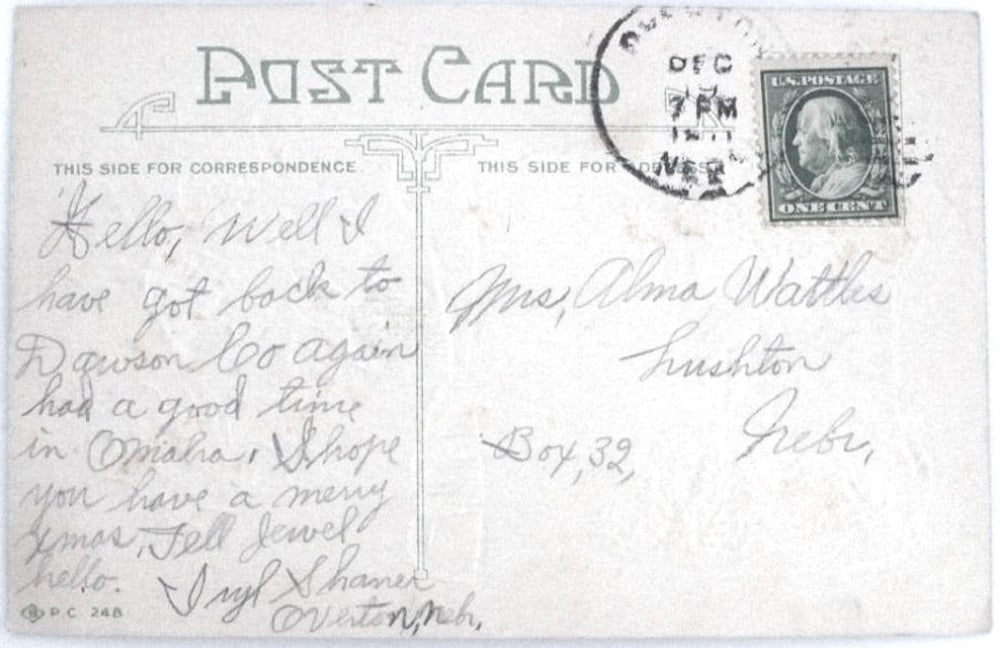 POST CARD
THIS SIDE FOR CORRESPONDENCE
Hello, Well I
have got back to
Dawson Co again
had a good time
in Omaha. I hope
you have a merry
xmas, Tell Jewel
hello.
Shaner
Overton, Nebr.
P.C. 248
THIS SIDE FOR ADDRESS
DEC
7 PM
U.S. POSTAGE
ONE CENT
Mrs, Alma Wattles
Lushton
Nebr,
Box, 32,